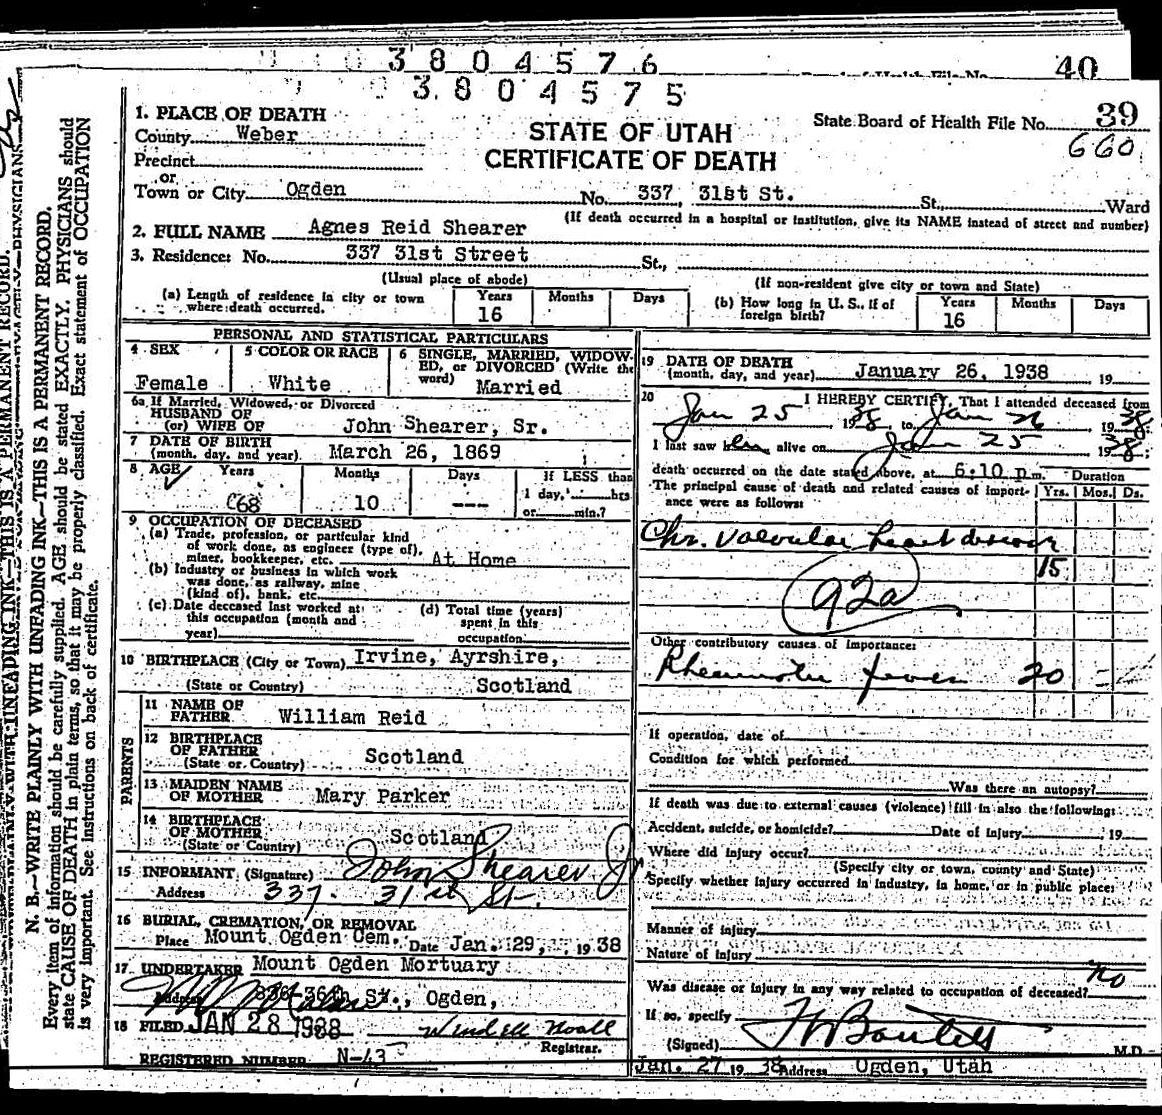 3804576
40
3804575
State Board of Health File No. 39
660
1. PLACE OF DEATH
County Weber
STATE OF UTAH
CERTIFICATE OF DEATH
Precinct
or
Town or City Ogden No. 337 31st St. St., Ward
(If death occurred in a hospital or institution, give its NAME instead of street and number)
2. FULL NAME Agnes Reid Shearer
3. Residence: No. 337 31st Street St.,
(Usual place of abode) (If non-resident give city or town and State)
(a) Length of residence in city or town where death occurred. Years 16 Months Days
(b) How long in U. S., if of foreign birth? Years 16 Months Days
PERSONAL AND STATISTICAL PARTICULARS
4 SEX Female
5 COLOR OR RACE White
6 SINGLE, MARRIED, WIDOWED, or DIVORCED (Write the word) Married
6a If Married, Widowed, or Divorced
HUSBAND OF
(or) WIFE OF John Shearer, Sr.
7 DATE OF BIRTH
(month, day, and year) March 26, 1869
8 AGE Years 68 Months 10 Days ---
If LESS than
1 day, hrs
or min.?
9 OCCUPATION OF DECEASED
(a) Trade, profession, or particular kind
of work done, as engineer (type of),
miner, bookkeeper, etc. At Home
(b) Industry or business in which work
was done, as railway, mine
(kind of), bank, etc.
(c) Date deceased last worked at
this occupation (month and
year)
(d) Total time (years)
spent in this
occupation
10 BIRTHPLACE (City or Town) Irvine, Ayrshire,
(State or Country) Scotland
PARENTS
11 NAME OF
FATHER William Reid
12 BIRTHPLACE
OF FATHER Scotland
(State or Country)
13 MAIDEN NAME
OF MOTHER Mary Parker
14 BIRTHPLACE
OF MOTHER Scotland
(State or Country)
15 INFORMANT (Signature) John Shearer Jr.
Address 337 - 31st St.
16 BURIAL, CREMATION, OR REMOVAL
Place Mount Ogden Cem. Date Jan. 29, 1938
17 UNDERTAKER Mount Ogden Mortuary
Address 836-36th St., Ogden,
18 FILED JAN 28 1938 Wendell Noall
Registrar.
REGISTERED NUMBER N-43
19 DATE OF DEATH
(month, day, and year) January 26, 1938 19
20 I HEREBY CERTIFY, That I attended deceased from
Jan 25 1938, to Jan 26 1938
I last saw her alive on Jan 25 1938;
death occurred on the date stated above, at 6:10 p.m.
The principal cause of death and related causes of importance were as follows:
Duration
Yrs. Mos. Ds.
Chr. valvular heart disease
15
92a
Other contributory causes of importance:
Rheumatic fever 20 - -
If operation, date of
Condition for which performed
Was there an autopsy?
If death was due to external causes (violence) fill in also the following:
Accident, suicide, or homicide? Date of injury 19
Where did injury occur?
(Specify city or town, county and State)
Specify whether injury occurred in industry, in home, or in public place:
Manner of injury
Nature of injury
Was disease or injury in any way related to occupation of deceased? no
If so, specify
(Signed) M.D.
Jan. 27 1938 Address Ogden, Utah
N. B.—WRITE PLAINLY WITH UNFADING INK—THIS IS A PERMANENT RECORD.
Every item of information should be carefully supplied. AGE should be stated EXACTLY. PHYSICIANS should
state CAUSE OF DEATH in plain terms, so that it may be properly classified. Exact statement of OCCUPATION
is very important. See instructions on back of certificate.